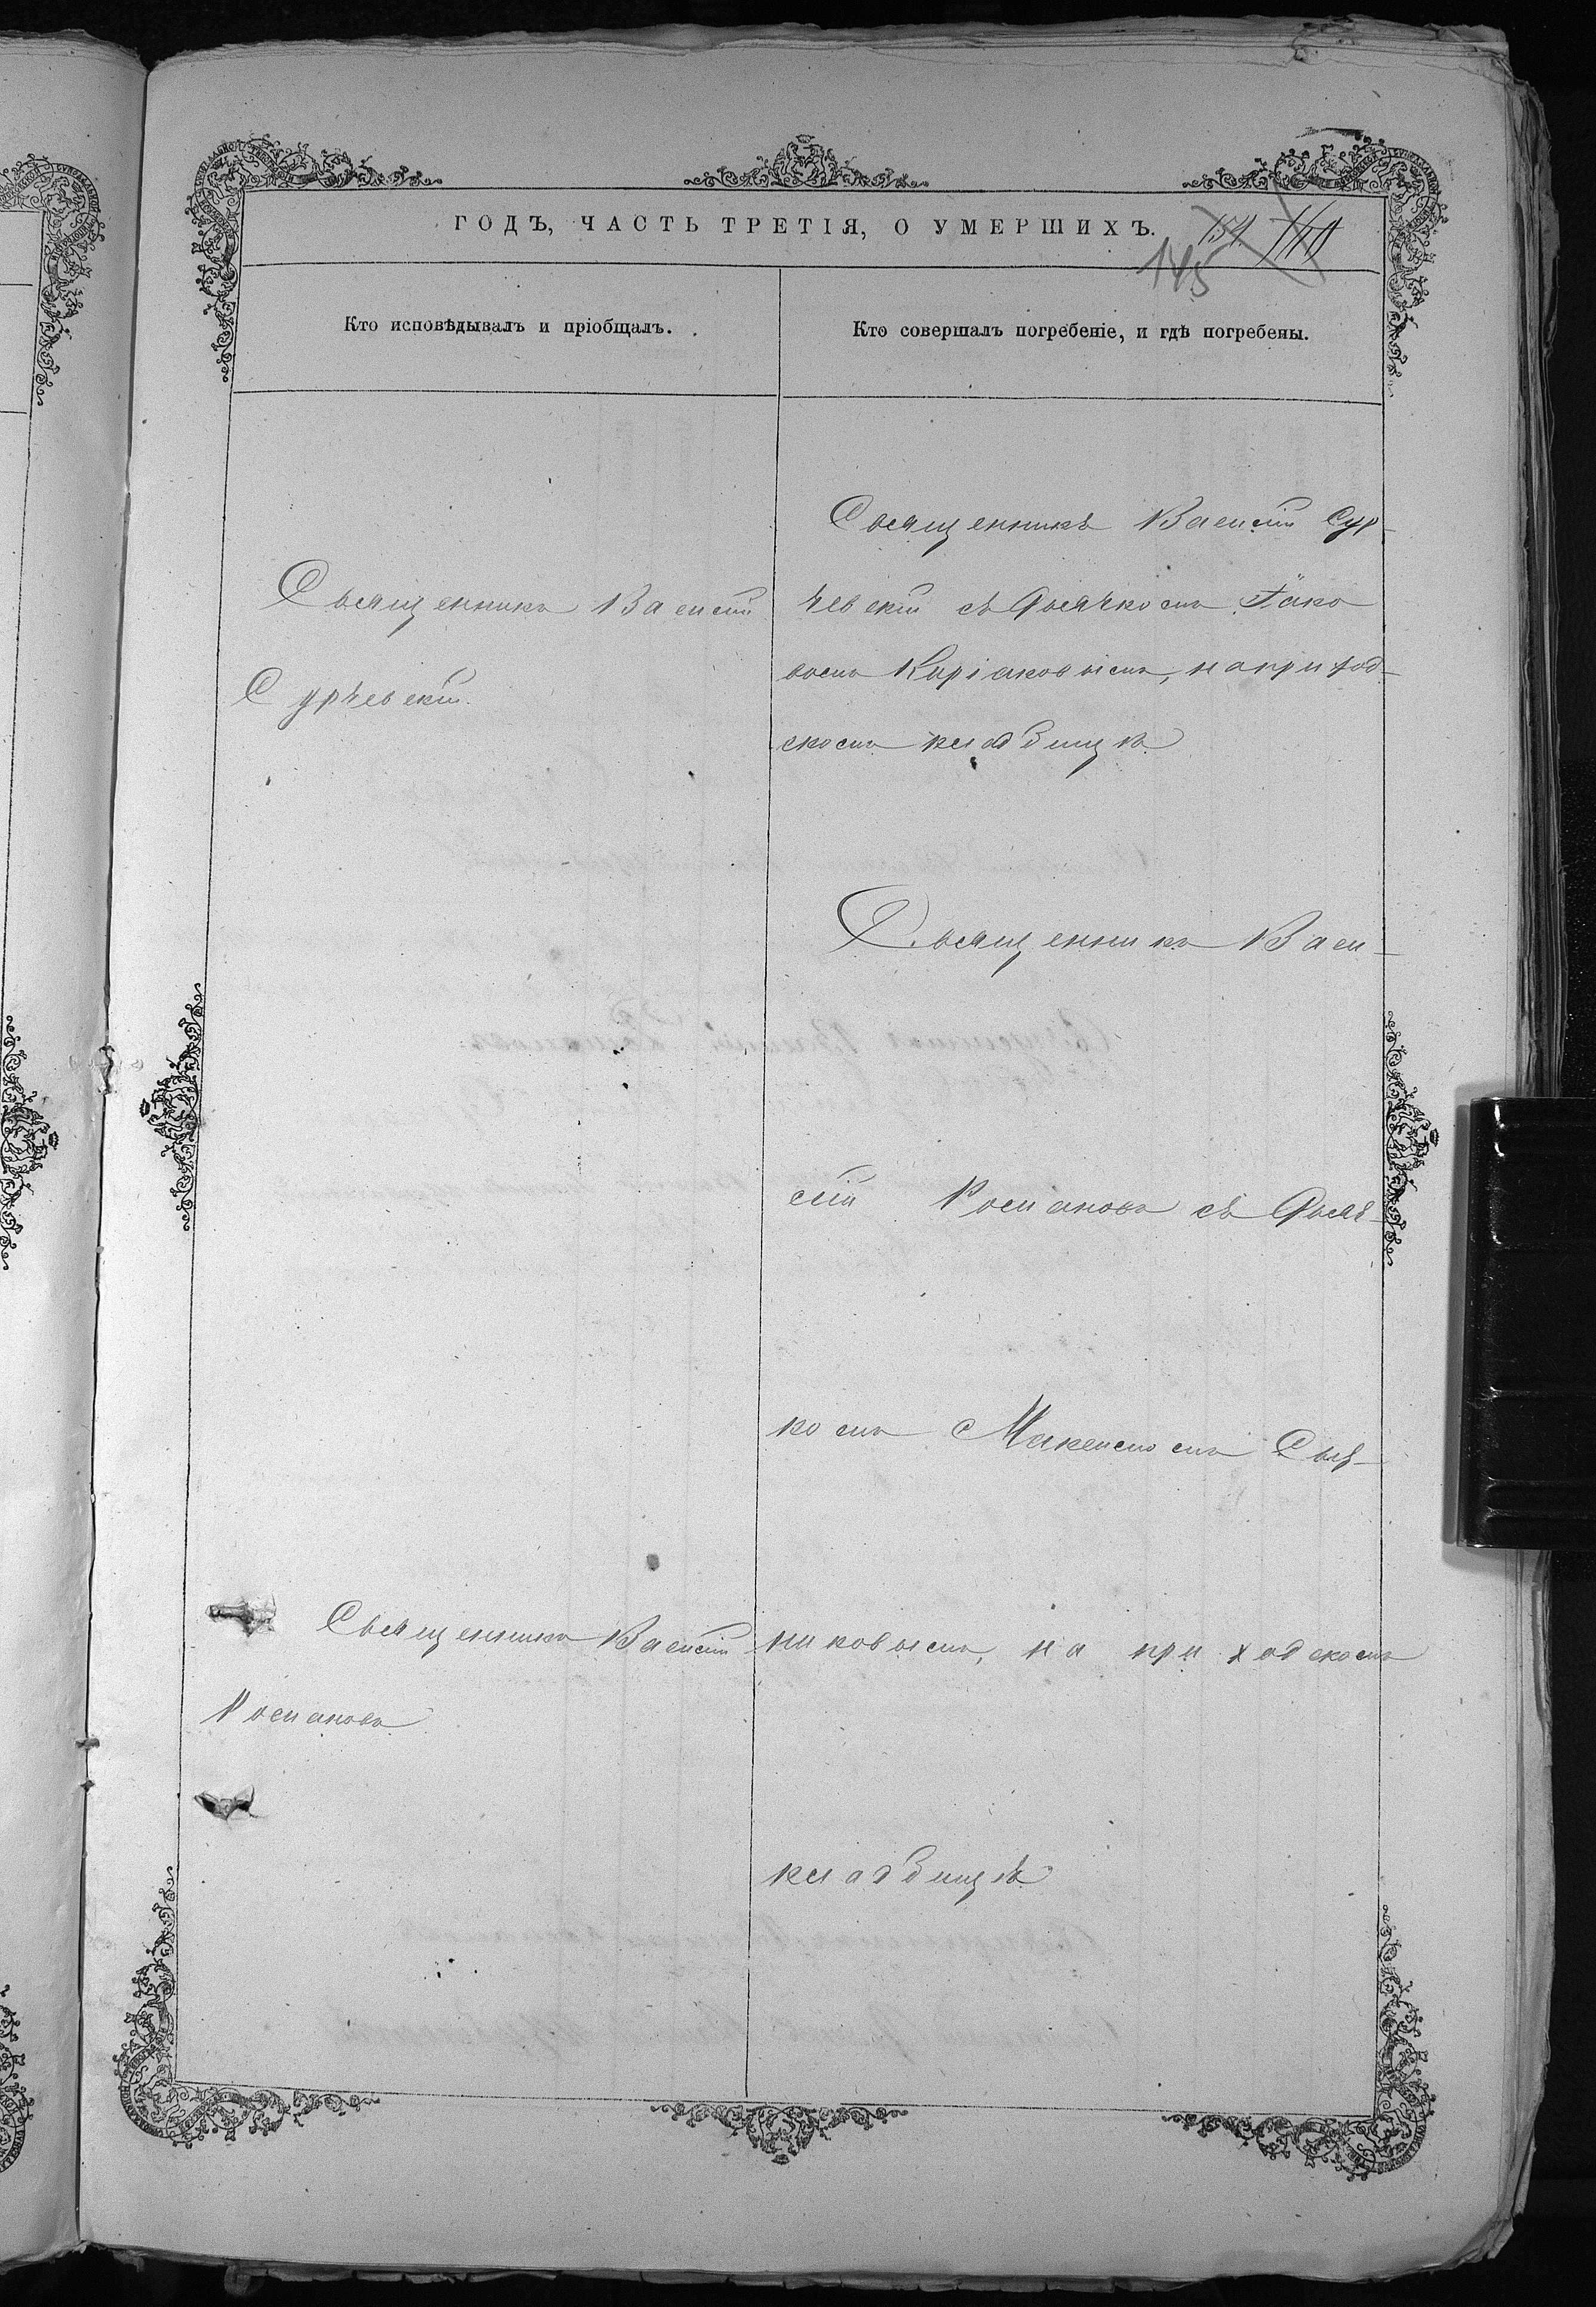 ГОДЪ, ЧАСТЬ ТРЕТІЯ, О УМЕРШИХЪ.
145
Кто исповѣдывалъ и пріобщалъ.
Кто совершалъ погребеніе, и гдѣ погребены.
Священникъ Василій
Сурчевскій.
Священникъ Василій Сур-
чевскій съ Дьячкомъ Іако
вомъ Киріаковымъ, на приход-
скомъ кладбищѣ
Священникъ Васи-
лій Романовъ съ Дьяч-
комъ Максимомъ
Священникъ Василій
Романовъ
никовымъ, на приходскомъ
кладбищѣ